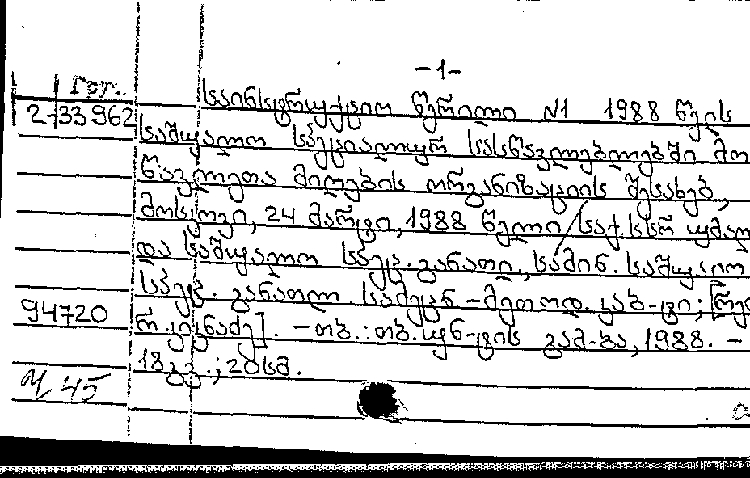 -1-
Гру.
საინსტრუქციო წერილი №1 1988 წლის
2-33962
საშუალო სპეციალურ სასწავლებლებში მო
წავლეთა მიღების ორგანიზაციის შესახებ,
მოსკოვი, 24 მარტი, 1988 წელი/საქ. სსრ უმაღ
და საშუალო სპეც. განათლ., სამინ. საშუალო
სპეც. განათლ. სამეცნ-მეთოდ. კაბ-ტი; [რედ
94720
რ. კიკნაძე]. -თბ.: თბ. უნ-ტის გამ-ბა, 1988. -
18გვ.; 20სმ.
М 45